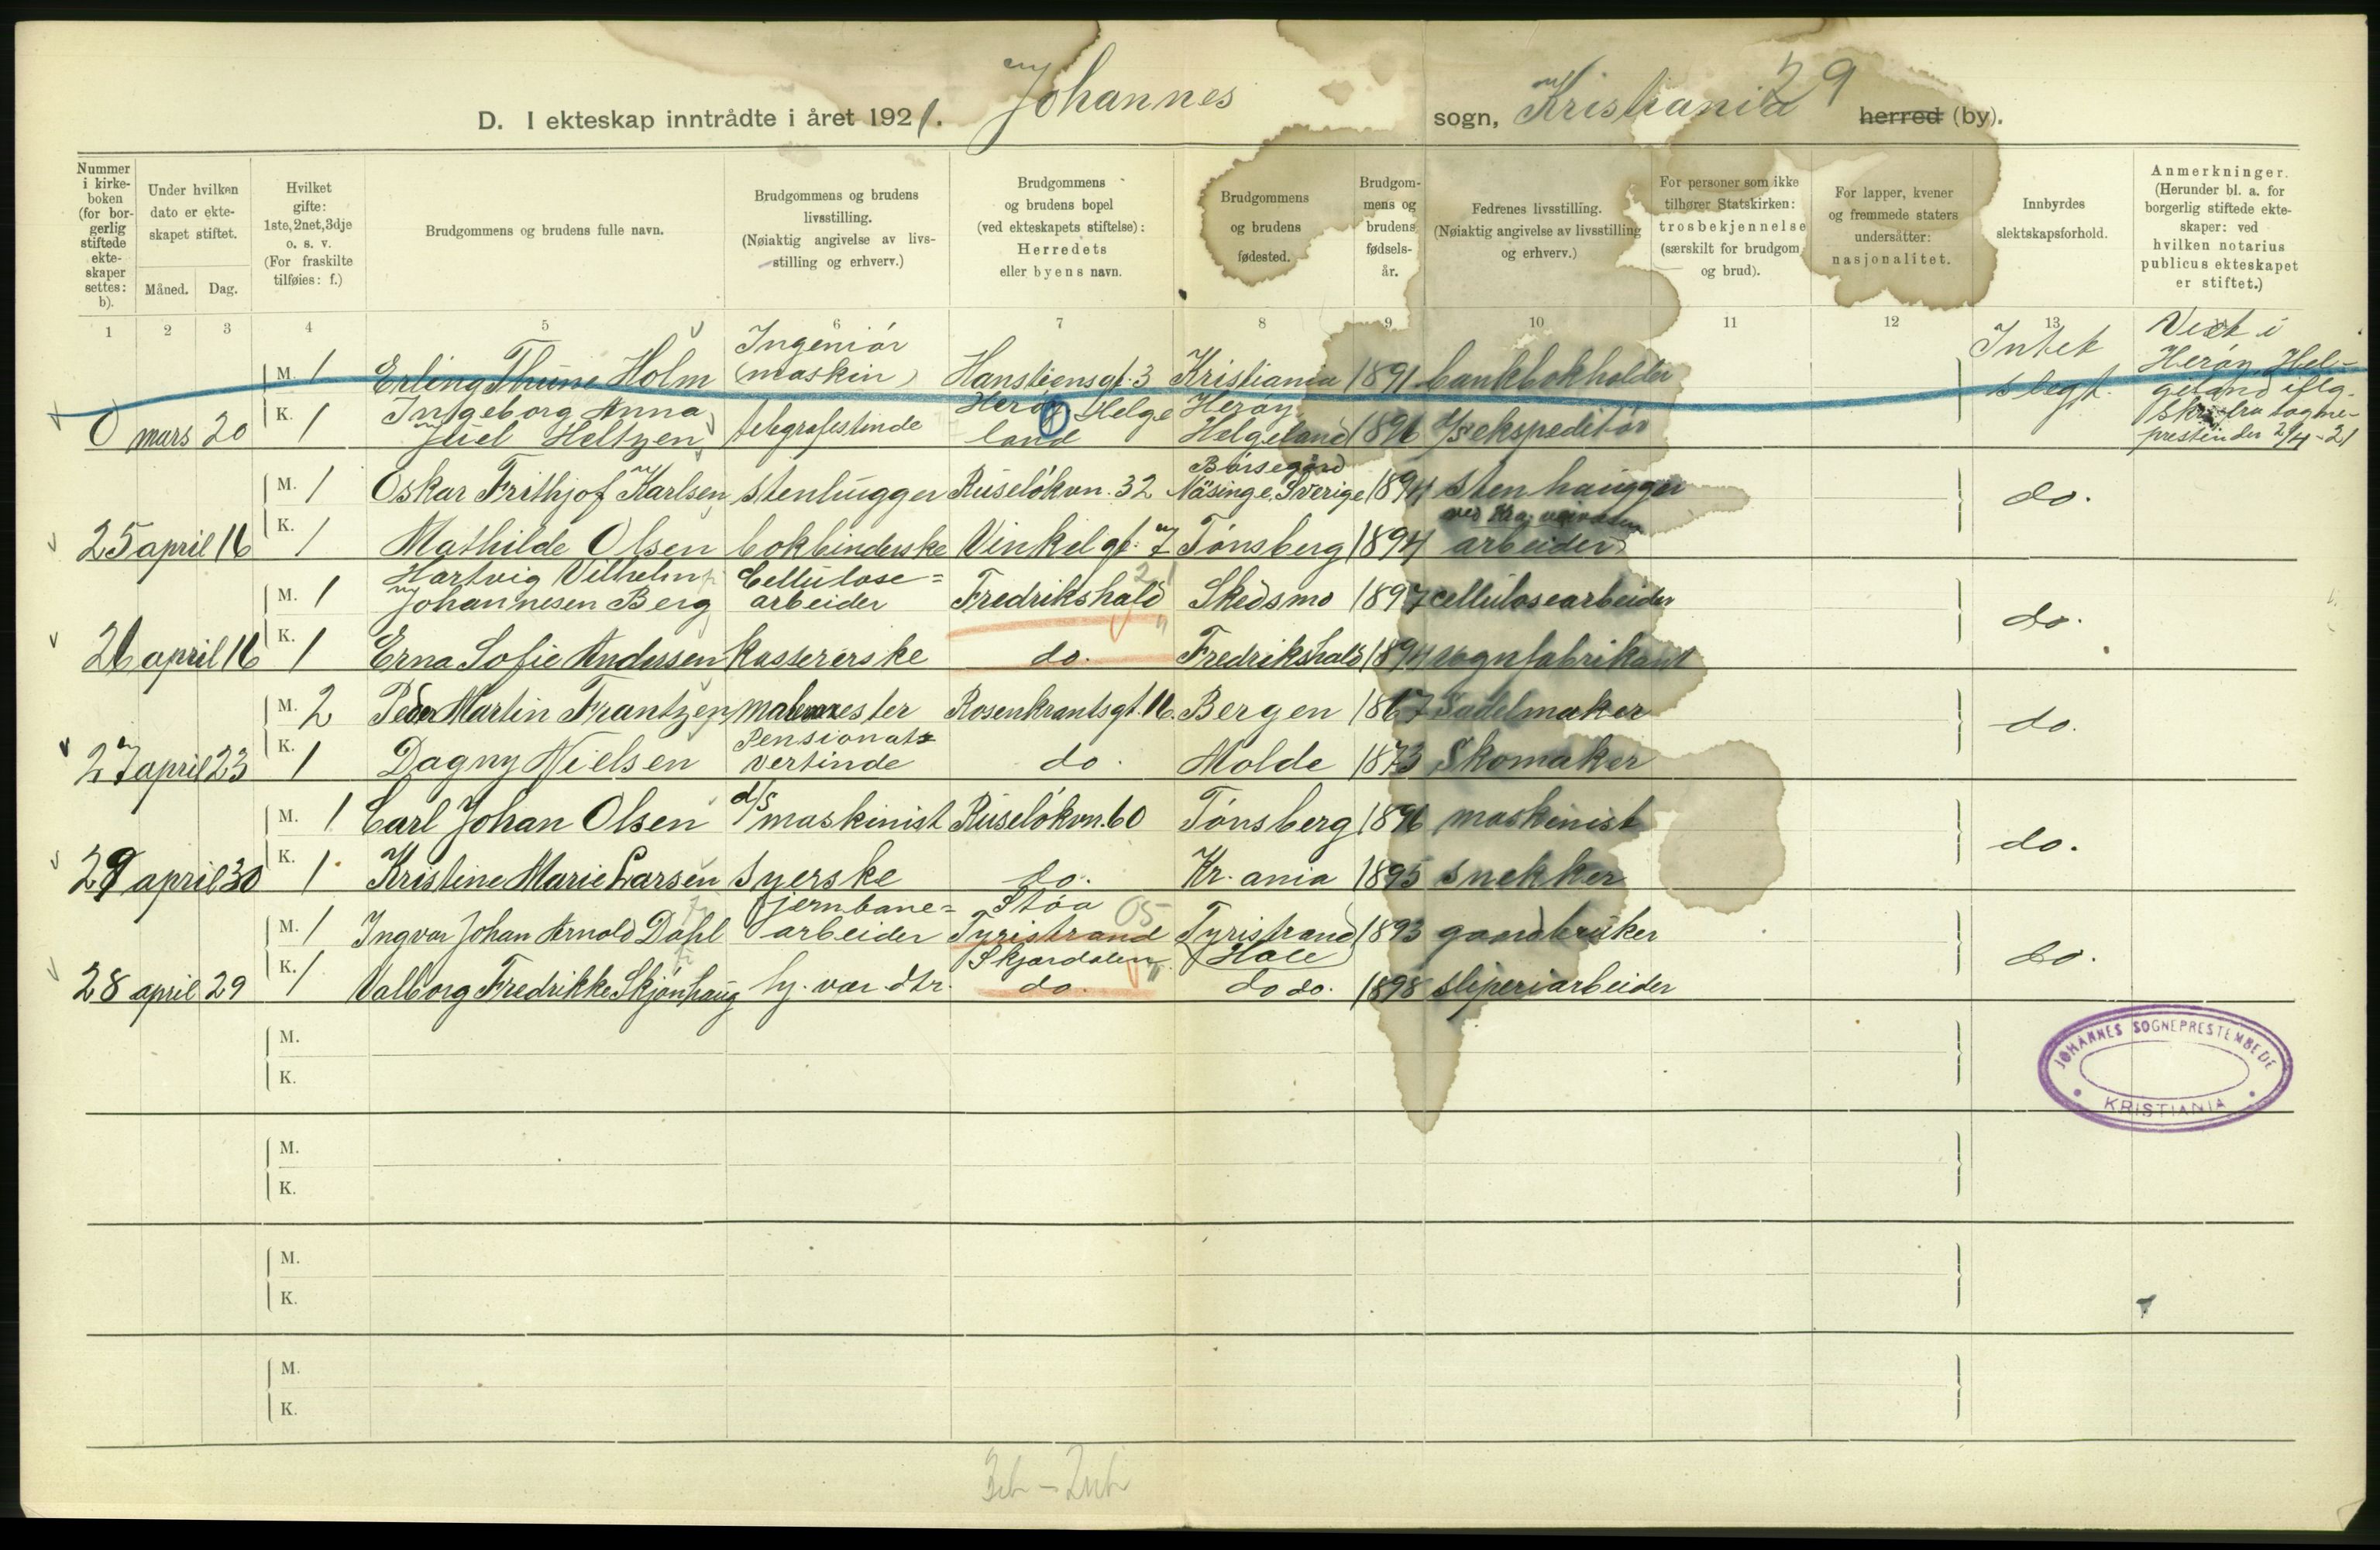 29
D. I ekteskap inntrådte i året 1921. Johannes sogn, Kristiania herred (by).
Nummer i kirkeboken (for borgerlig stiftede ekteskaper settes: b).
Under hvilken dato er ekteskapet stiftet.
Måned. Dag.
Hvilket gifte: 1ste, 2net, 3dje o. s. v. (For fraskilte tilføies: f.)
Brudgommens og brudens fulle navn.
Brudgommens og brudens livsstilling. (Nøiaktig angivelse av livsstilling og erhverv.)
Brudgommens og brudens bopel (ved ekteskapets stiftelse): Herredets eller byens navn.
Brudgommens og brudens fødested.
Brudgommens og brudens fødselsår.
Fedrenes livsstilling. (Nøiaktig angivelse av livsstilling og erhverv.)
For personer som ikke tilhører Statskirken: trosbekjennelse (særskilt for brudgom og brud).
For lapper, kvener og fremmede staters undersåtter: nasjonalitet.
Innbyrdes slektskapsforhold.
Anmerkninger. (Herunder bl. a. for borgerlig stiftede ekteskaper: ved hvilken notarius publicus ekteskapet er stiftet.)
1 2 3 4 5 6 7 8 9 10 11 12 13
M. 1 Erling Thune Holm Ingeniór (maskin) Hansteensgt. 3 Kristiania 1891 bankbokholder Intet slegt. Viet i Herøy Helgeland iflg. skr. fra sognepresten der 2/4-21
0 mars 20 K. 1 Ingeborg Anna Juel Heltzen telegrafistinde Herøy Helgeland Herøy Helgeland 1896 d/s ekspeditør
M. 1 Oskar Frithjof Karlsen stenhugger Ruseløkvn. 32 Börsegård Näsinge, Sverige 1894 stenhaugger do.
25 april 16 K. 1 Mathilde Olsen bokbinderske Vinkelgt. 7 Tønsberg 1894 arbeider
M. 1 Hartvig Vilhelm Johannesen Berg Cellulose=arbeider Fredrikshald 21 Skedsmo 1897 cellulosearbeider do.
26 april 16 K. 1 Erna Sofie Andersen kassererske do. Fredrikshald 1894 vognfabrikant
M. 2 Peder Martin Frantzen malermester Rosenkrantsgt. 16. Bergen 1867 Sadelmaker do.
27 april 23 K. 1 Dagny Nielsen Pensionatsvertinde do. Molde 1873 Skomaker
M. 1 Carl Johan Olsen d/s maskinist Ruseløkvn. 60 Tønsberg 1896 maskinist do.
29 april 30 K. 1 Kristine Marie Larsen Syerske do. Kr.ania 1895 snekker
M. 1 Ingvar Johan Arnold Dahl jernbane=arbeider Støa Tyristrand 05 Tyristrand (Hole) 1893 gaardbruker do.
28 april 29 K. 1 Valborg Fredrikke Skjønhaug hj. vær. dtr. Skjærdalen do. do do. 1898 sliperiarbeider
M.
K.
JOHANNES SOGNEPRESTEMBEDE KRISTIANIA
M.
K.
M.
K.
M.
K.